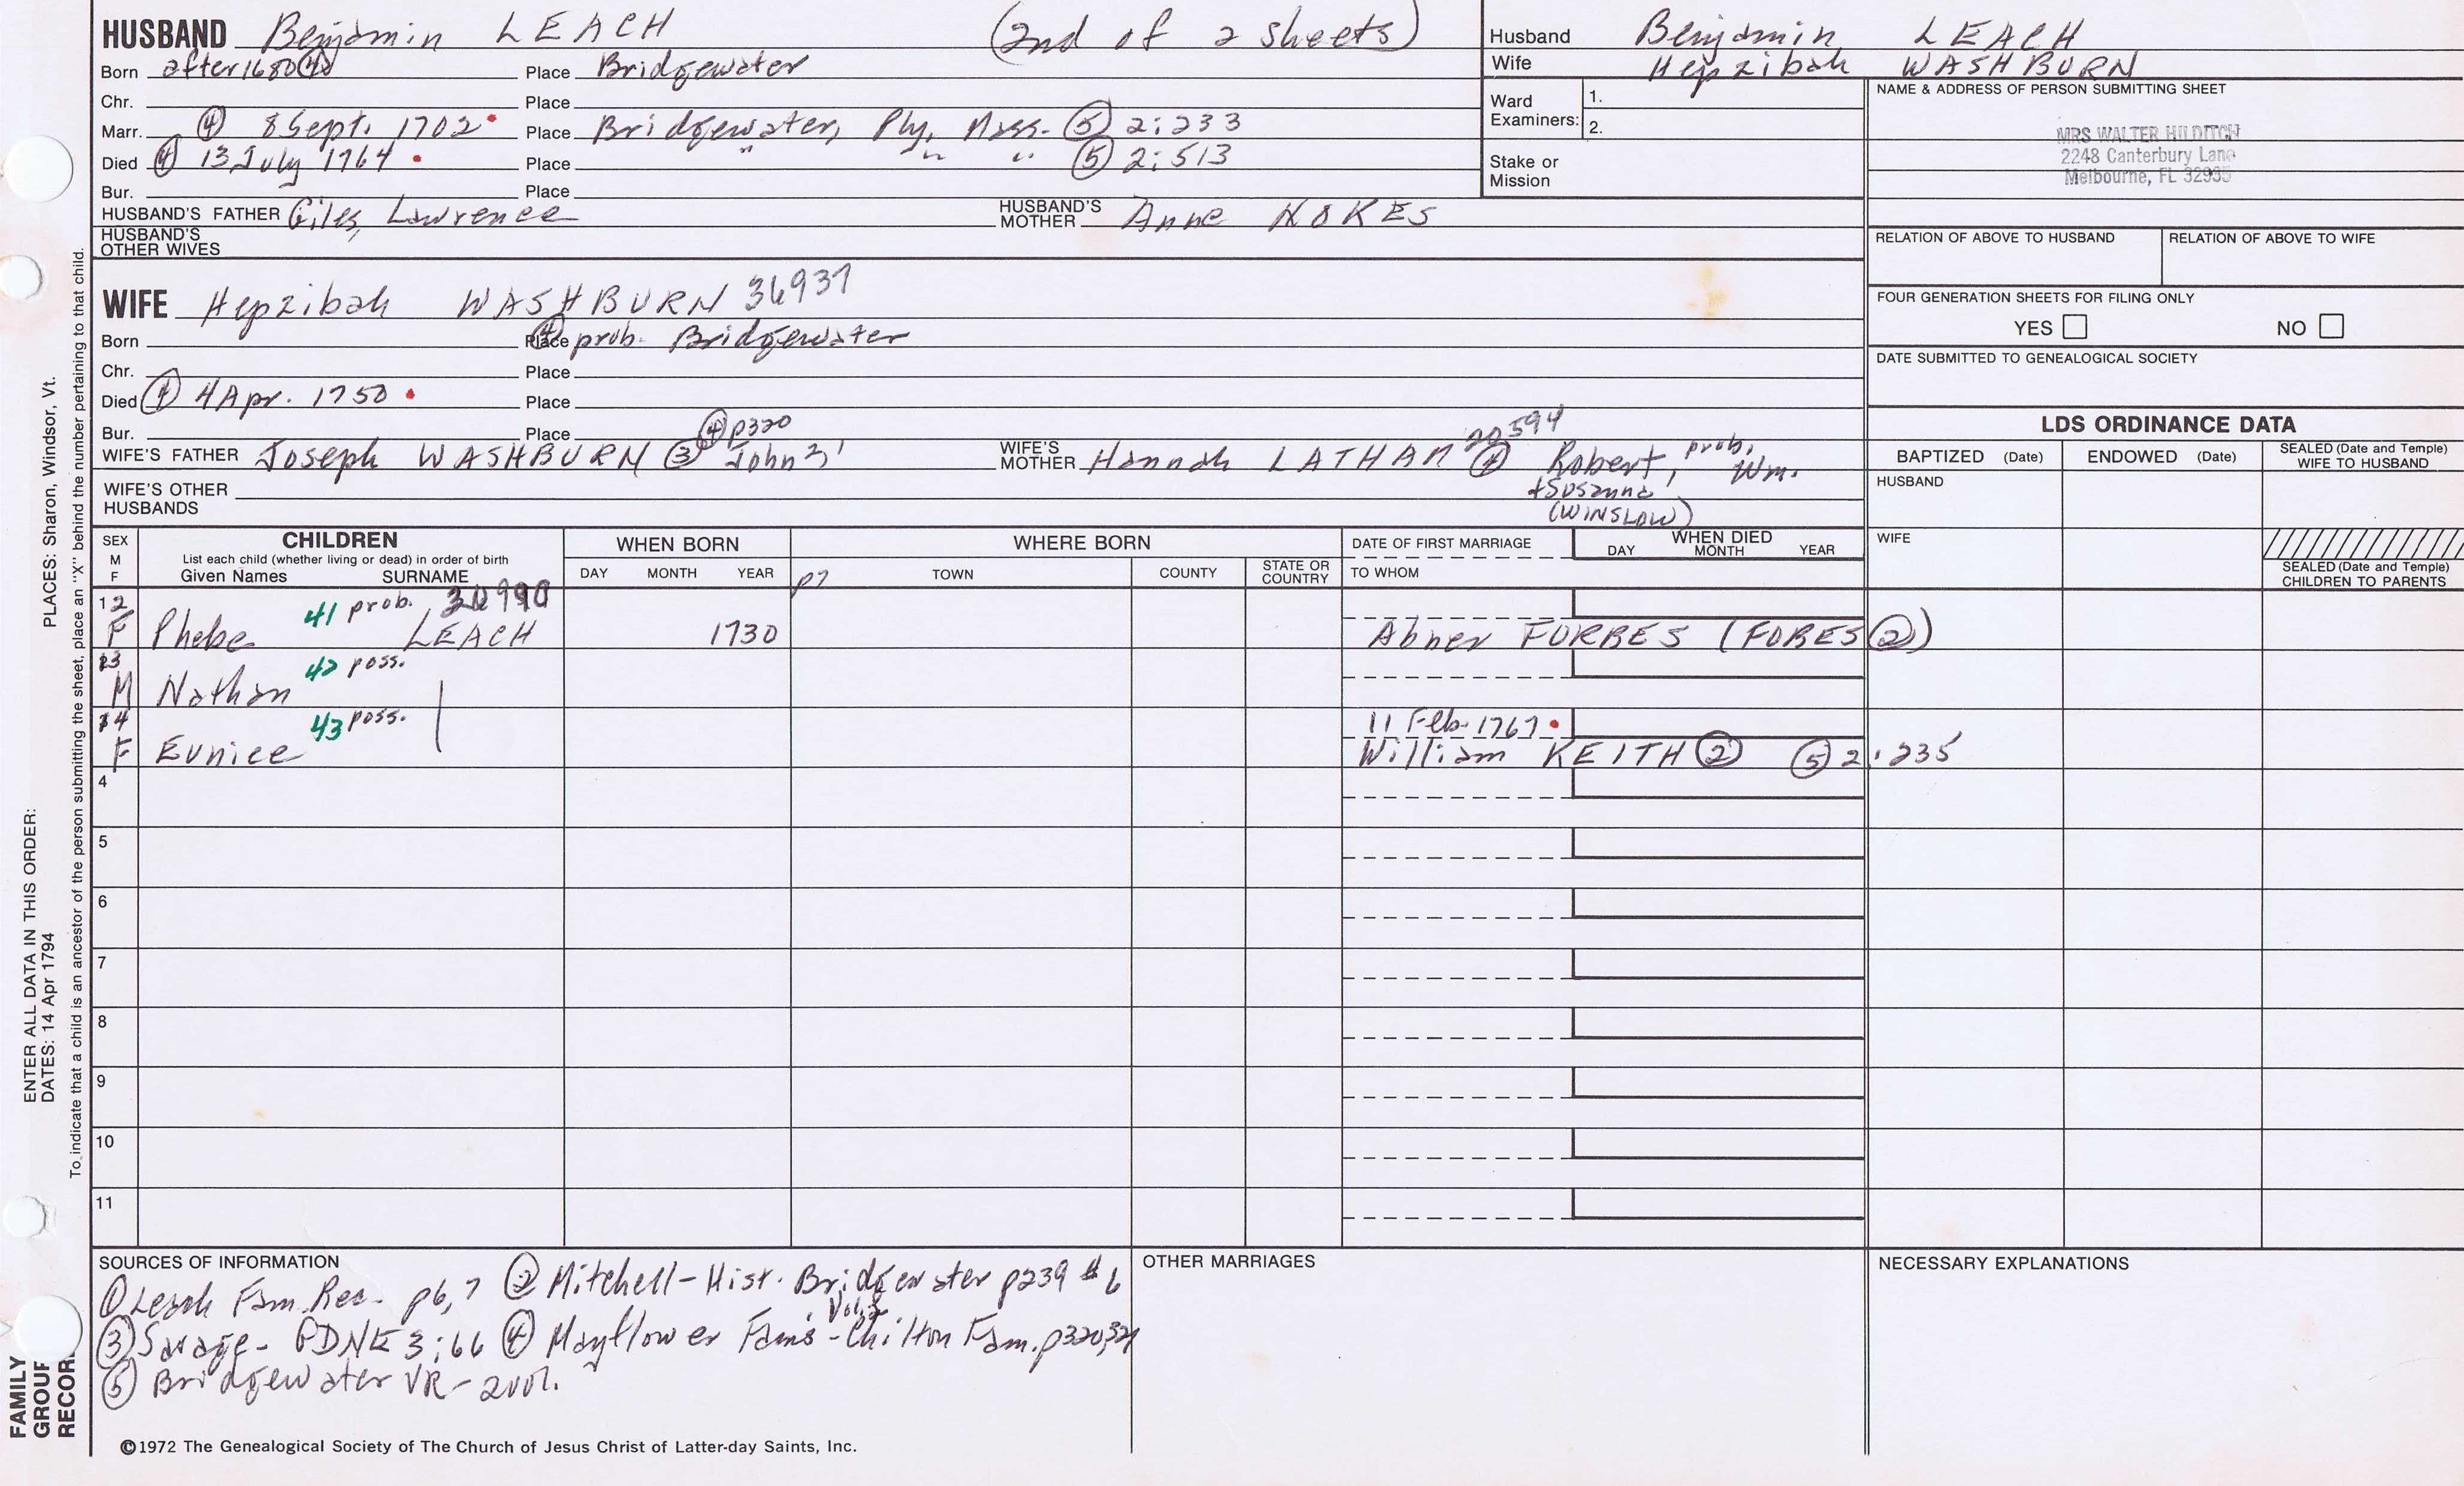 HUSBAND Benjamin LEACH (2nd of 2 sheets)
Born after 1680 ④ Place Bridgewater
Chr. Place
Marr. ④ 8 Sept. 1702 Place Bridgewater, Ply, Mass. ⑤ 2:233
Died ④ 13 July 1764 Place " " " ⑤ 2:513
Bur. Place
HUSBAND'S FATHER Giles, Lawrence HUSBAND'S MOTHER Anne NOKES
HUSBAND'S OTHER WIVES
Husband Benjamin LEACH
Wife Hepzibah WASHBURN
Ward Examiners: 1.
2.
Stake or Mission
NAME & ADDRESS OF PERSON SUBMITTING SHEET
MRS WALTER HILDITCH
2248 Canterbury Lane
Melbourne, FL 32935
RELATION OF ABOVE TO HUSBAND RELATION OF ABOVE TO WIFE
FOUR GENERATION SHEETS FOR FILING ONLY
YES NO
DATE SUBMITTED TO GENEALOGICAL SOCIETY
WIFE Hepzibah WASHBURN 36937
Born Place ④ prob. Bridgewater
Chr. Place
Died ④ 4 Apr. 1750 Place
Bur. Place ④ p320
WIFE'S FATHER Joseph WASHBURN ③ John 2, 1 WIFE'S MOTHER Hannah LATHAM 20594 ④ Robert, prob. Wm.
+ Susanna
(WINSLOW)
WIFE'S OTHER HUSBANDS
LDS ORDINANCE DATA
BAPTIZED (Date) ENDOWED (Date) SEALED (Date and Temple) WIFE TO HUSBAND
HUSBAND
WIFE
SEALED (Date and Temple) CHILDREN TO PARENTS
SEX M F
CHILDREN
List each child (whether living or dead) in order of birth
Given Names SURNAME
WHEN BORN
DAY MONTH YEAR
WHERE BORN
p7 TOWN COUNTY STATE OR COUNTRY
DATE OF FIRST MARRIAGE
TO WHOM
WHEN DIED
DAY MONTH YEAR
12 41 prob.
F Phebe LEACH 1730 Abner FORBES (FOBES ②)
13 42 poss.
M Nathan
14 43 poss. 11 Feb. 1767
F Eunice William KEITH ② ⑤ 2:235
4
5
6
7
8
9
10
11
SOURCES OF INFORMATION
① Leach Fam. Rec. p6,7 ② Mitchell-Hist. Bridgewater p239 #6
③ Savage- GDNE 3:66 ④ Mayflower Fams Vol.2 - Chilton Fam. p320,321
⑤ Bridgewater VR - 2 vol.
OTHER MARRIAGES
NECESSARY EXPLANATIONS
©1972 The Genealogical Society of The Church of Jesus Christ of Latter-day Saints, Inc.
FAMILY GROUP RECOR
ENTER ALL DATA IN THIS ORDER:
DATES: 14 Apr 1794 PLACES: Sharon, Windsor, Vt.
To indicate that a child is an ancestor of the person submitting the sheet, place an "X" behind the number pertaining to that child.